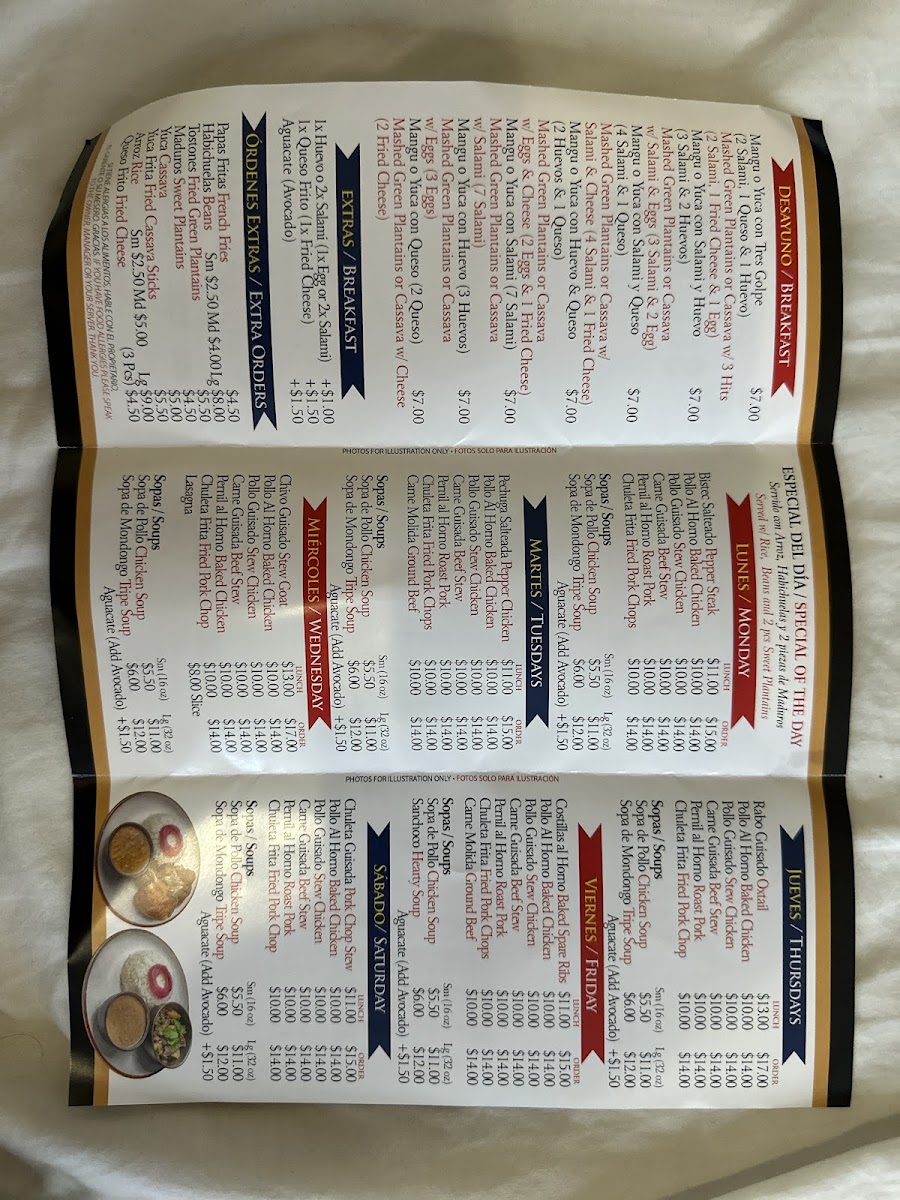 DESAYUNO / BREAKFAST
Mangu o Yuca con Tres Golpe $7.00
(2 Salami, 1 Queso & 1 Huevo)
Mashed Green Plantains or Cassava w/ 3 Hits
(2 Salami, 1 Fried Cheese & 1 Egg)
Mangu o Yuca con Salami y Huevo $7.00
(3 Salami & 2 Huevos)
Mashed Green Plantains or Cassava
w/ Salami & Eggs (3 Salami & 2 Egg)
Mangu o Yuca con Salami y Queso $7.00
(4 Salami & 1 Queso)
Mashed Green Plantains or Cassava w/
Salami & Cheese (4 Salami & 1 Fried Cheese)
Mangu o Yuca con Huevo & Queso $7.00
(2 Huevos & 1 Queso)
Mashed Green Plantains or Cassava
w/ Eggs & Cheese (2 Eggs & 1 Fried Cheese)
Mangu o Yuca con Salami (7 Salami) $7.00
Mashed Green Plantains or Cassava
w/ Salami (7 Salami)
Mangu o Yuca con Huevo (3 Huevos) $7.00
Mashed Green Plantains or Cassava
w/ Eggs (3 Eggs)
Mangu o Yuca con Queso (2 Queso) $7.00
Mashed Green Plantains or Cassava w/ Cheese
(2 Fried Cheese)
EXTRAS / BREAKFAST
1x Huevo o 2x Salami (1x Egg or 2x Salami) +$1.00
1x Queso Frito (1x Fried Cheese) +$1.50
Aguacate (Avocado) +$1.50
ÓRDENES EXTRAS / EXTRA ORDERS
Papas Fritas French Fries $4.50
Habichuelas Beans Sm $2.50 Md $4.00 Lg $8.00
Tostones Fried Green Plantains $5.50
Maduros Sweet Plantains $4.50
Yuca Cassava $5.00
Yuca Frita Fried Cassava Sticks $5.50
Arroz Rice Sm $2.50 Md $5.00 Lg $9.00
Queso Frito Fried Cheese (3 Pcs) $4.50
SI TIENE ALERGIAS A LOS ALIMENTOS, HABLE CON EL PROPIETARIO,
EL GERENTE O SU MESERO. GRACIAS. IF YOU HAVE FOOD ALLERGIES PLEASE SPEAK
TO THE OWNER, MANAGER OR YOUR SERVER. THANK YOU.
PHOTOS FOR ILLUSTRATION ONLY • FOTOS SOLO PARA ILUSTRACIÓN
ESPECIAL DEL DÍA / SPECIAL OF THE DAY
Servido con Arroz, Habichuelas y 2 piezas de Maduros
Served w/ Rice, Beans and 2 pcs Sweet Plantains
LUNES / MONDAY
LUNCH ORDER
Bistec Salteado Pepper Steak $11.00 $15.00
Pollo Al Horno Baked Chicken $10.00 $14.00
Pollo Guisado Stew Chicken $10.00 $14.00
Carne Guisada Beef Stew $10.00 $14.00
Pernil al Horno Roast Pork $10.00 $14.00
Chuleta Frita Fried Pork Chops $10.00 $14.00
Sopas / Soups Sm (16 oz) Lg (32 oz)
Sopa de Pollo Chicken Soup $5.50 $11.00
Sopa de Mondongo Tripe Soup $6.00 $12.00
Aguacate (Add Avocado) +$1.50
MARTES / TUESDAYS
LUNCH ORDER
Pechuga Salteada Pepper Chicken $11.00 $15.00
Pollo Al Horno Baked Chicken $10.00 $14.00
Pollo Guisado Stew Chicken $10.00 $14.00
Carne Guisada Beef Stew $10.00 $14.00
Pernil al Horno Roast Pork $10.00 $14.00
Chuleta Frita Fried Pork Chops $10.00 $14.00
Carne Molida Ground Beef $10.00 $14.00
Sopas / Soups Sm (16 oz) Lg (32 oz)
Sopa de Pollo Chicken Soup $5.50 $11.00
Sopa de Mondongo Tripe Soup $6.00 $12.00
Aguacate (Add Avocado) +$1.50
MIÉRCOLES / WEDNESDAY
LUNCH ORDER
Chivo Guisado Stew Goat $13.00 $17.00
Pollo Al Horno Baked Chicken $10.00 $14.00
Pollo Guisado Stew Chicken $10.00 $14.00
Carne Guisada Beef Stew $10.00 $14.00
Pernil al Horno Baked Chicken $10.00 $14.00
Chuleta Frita Fried Pork Chop $10.00 $14.00
Lasagna $8.00 Slice
Sopas / Soups Sm (16 oz) Lg (32 oz)
Sopa de Pollo Chicken Soup $5.50 $11.00
Sopa de Mondongo Tripe Soup $6.00 $12.00
Aguacate (Add Avocado) +$1.50
PHOTOS FOR ILLUSTRATION ONLY • FOTOS SOLO PARA ILUSTRACIÓN
JUEVES / THURSDAYS
LUNCH ORDER
Rabo Guisado Oxtail $13.00 $17.00
Pollo Al Horno Baked Chicken $10.00 $14.00
Pollo Guisado Stew Chicken $10.00 $14.00
Carne Guisada Beef Stew $10.00 $14.00
Pernil al Horno Roast Pork $10.00 $14.00
Chuleta Frita Fried Pork Chop $10.00 $14.00
Sopas / Soups Sm (16 oz) Lg (32 oz)
Sopa de Pollo Chicken Soup $5.50 $11.00
Sopa de Mondongo Tripe Soup $6.00 $12.00
Aguacate (Add Avocado) +$1.50
VIERNES / FRIDAY
LUNCH ORDER
Costillas al Horno Baked Spare Ribs $11.00 $15.00
Pollo Al Horno Baked Chicken $10.00 $14.00
Pollo Guisado Stew Chicken $10.00 $14.00
Carne Guisada Beef Stew $10.00 $14.00
Pernil al Horno Roast Pork $10.00 $14.00
Chuleta Frita Fried Pork Chops $10.00 $14.00
Carne Molida Ground Beef $10.00 $14.00
Sopas / Soups Sm (16 oz) Lg (32 oz)
Sopa de Pollo Chicken Soup $5.50 $11.00
Sanchoco Hearty Soup $6.00 $12.00
Aguacate (Add Avocado) +$1.50
SÁBADO / SATURDAY
LUNCH ORDER
Chuleta Guisada Pork Chop Stew $11.00 $15.00
Pollo Al Horno Baked Chicken $10.00 $14.00
Pollo Guisado Stew Chicken $10.00 $14.00
Carne Guisada Beef Stew $10.00 $14.00
Pernil al Horno Roast Pork $10.00 $14.00
Chuleta Frita Fried Pork Chop $10.00 $14.00
Sopas / Soups Sm (16 oz) Lg (32 oz)
Sopa de Pollo Chicken Soup $5.50 $11.00
Sopa de Mondongo Tripe Soup $6.00 $12.00
Aguacate (Add Avocado) +$1.50